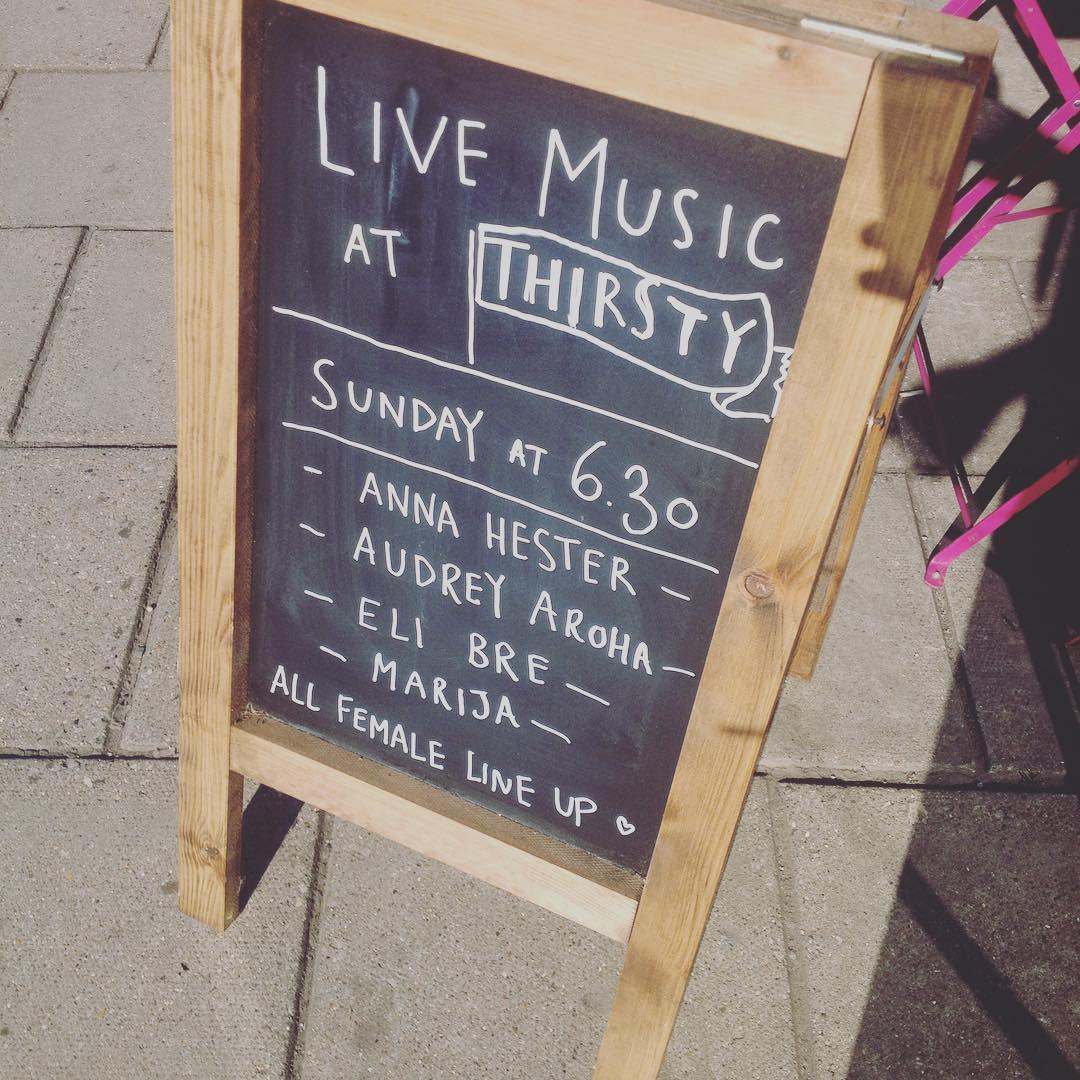 LIVE MUSIC
AT THIRSTY
SUNDAY AT 6.30
- ANNA HESTER -
- AUDREY AROHA -
- ELI BRE -
- MARIJA -
ALL FEMALE LINE UP ♡